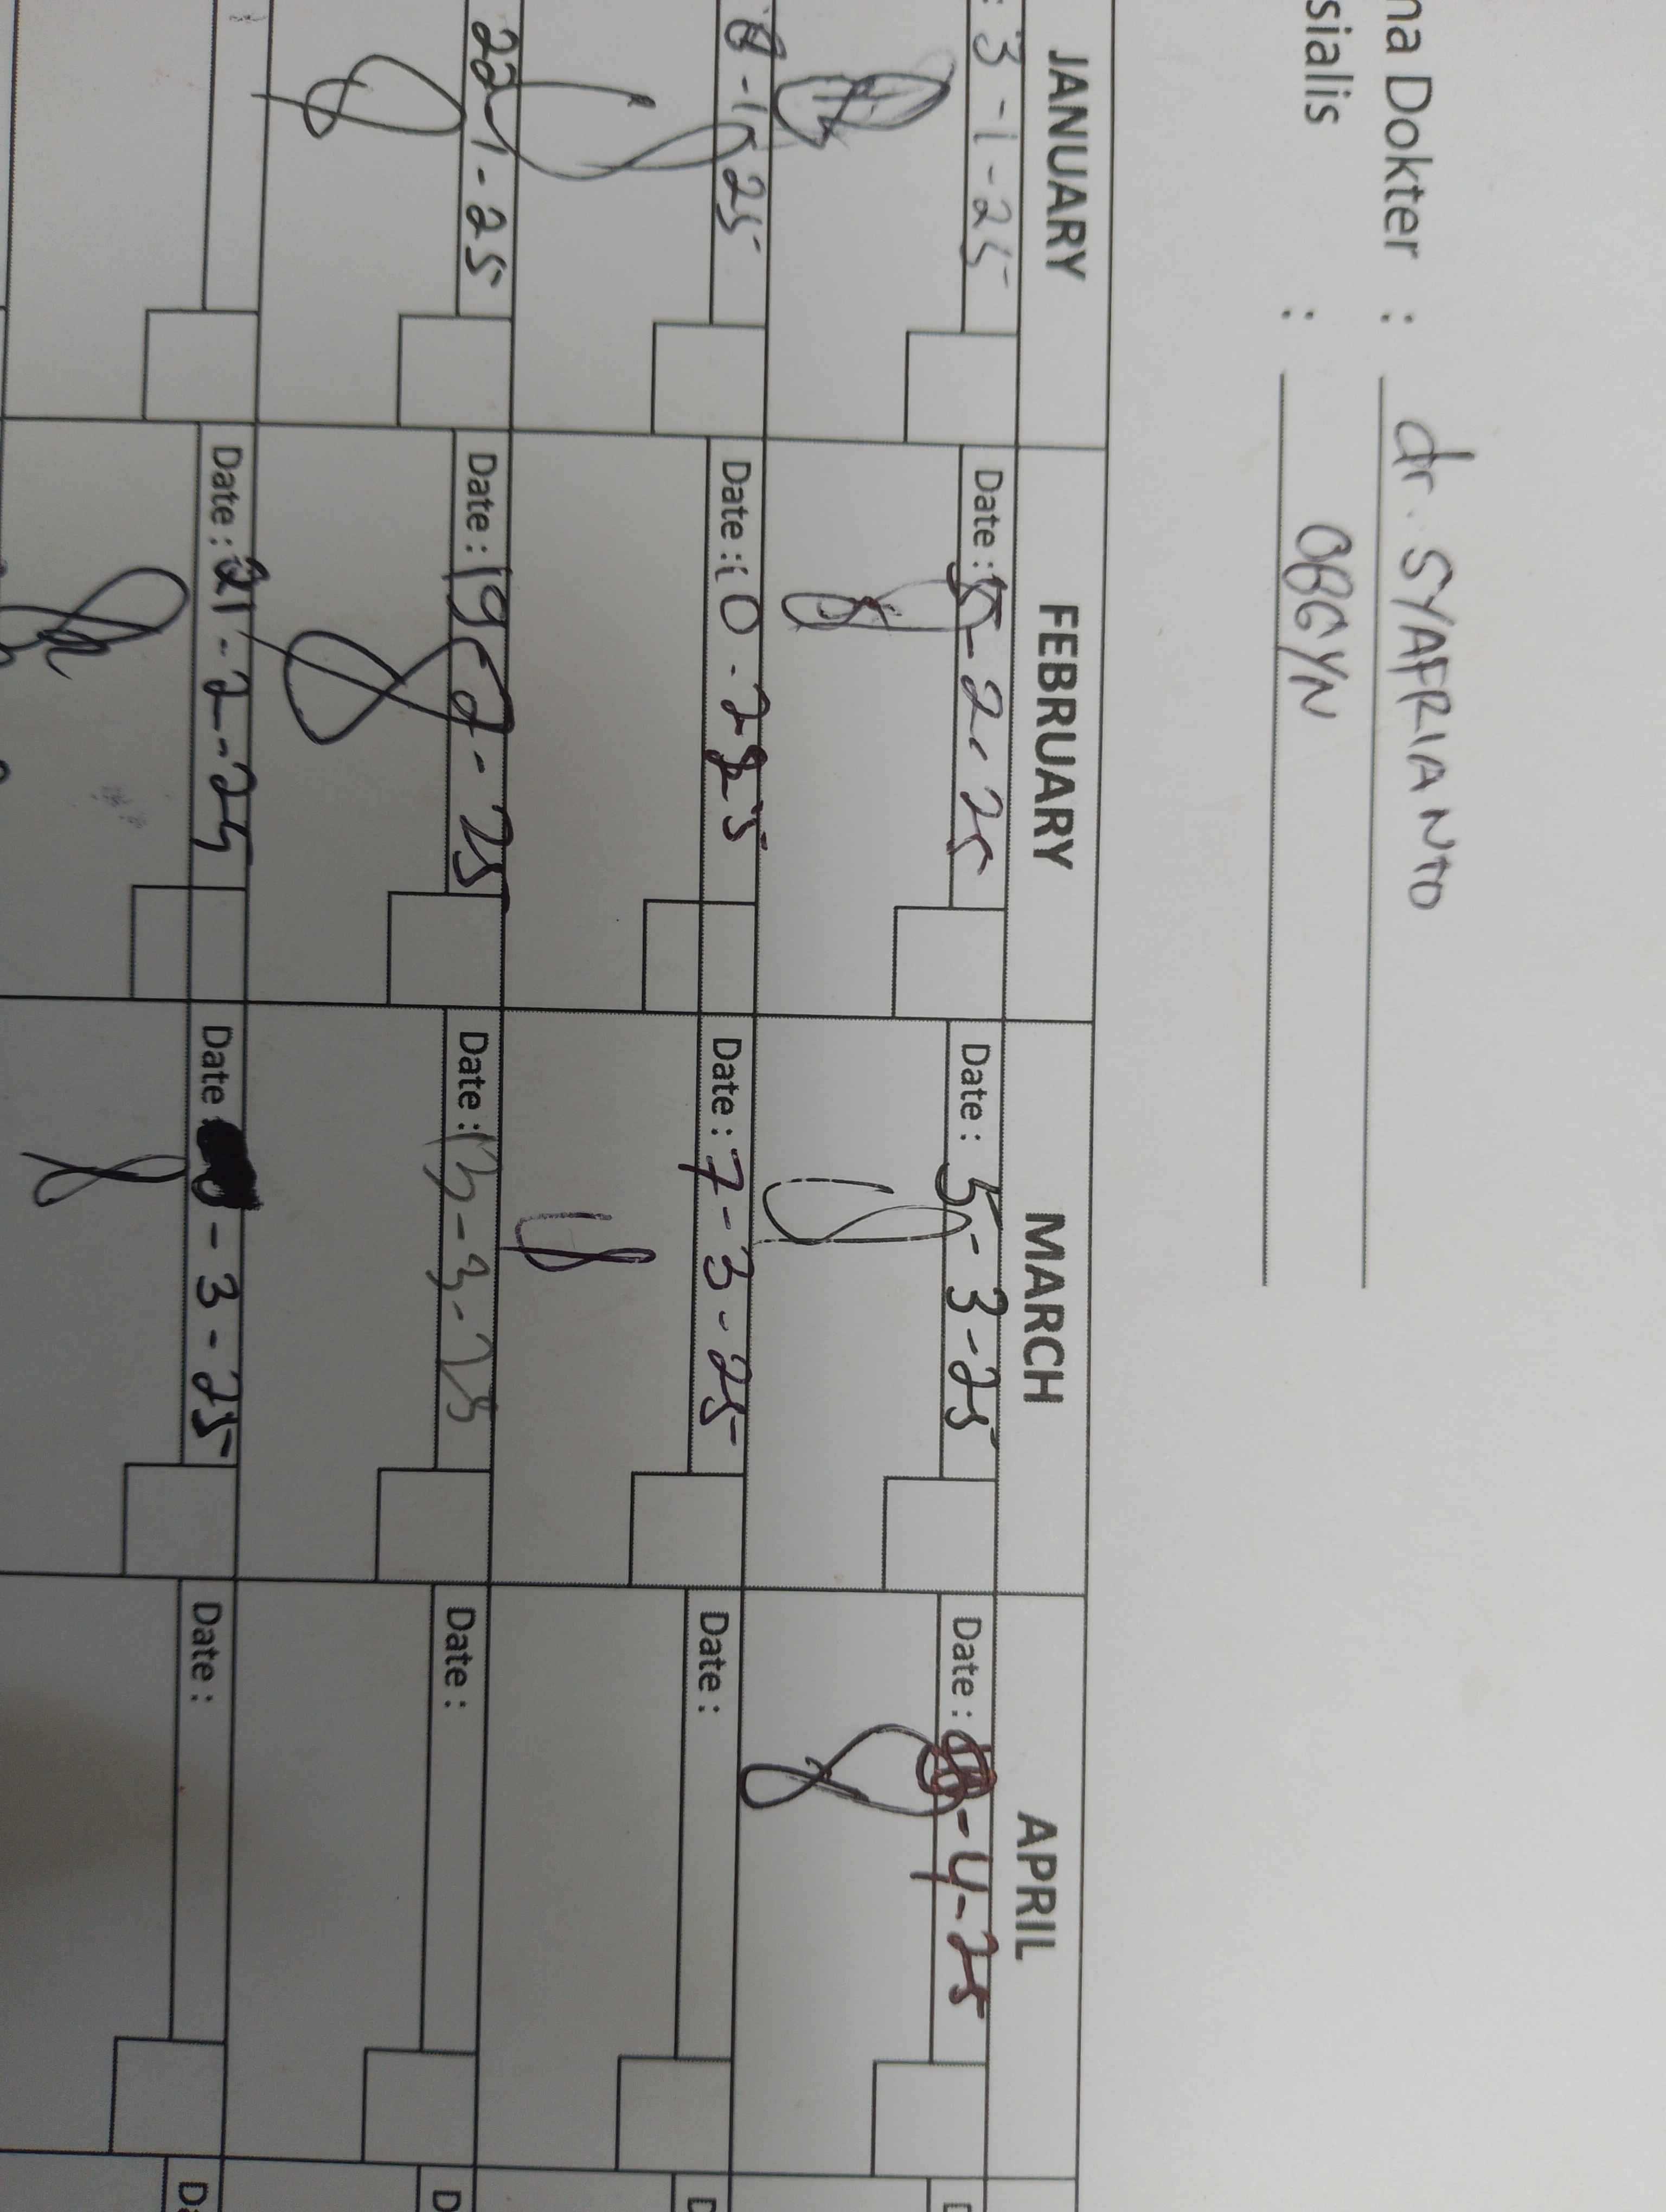 na Dokter : dr. SYAFRIANTO
sialis : OBGYN
JANUARY FEBRUARY MARCH APRIL
: 3-1-25 Date : 5-2-25 Date : 5-3-25 Date : -4-25
8-1-25 Date : 10-2-25 Date : 7-3-25 Date :
22-1-25 Date : 19-2-25 Date : 13-3-25 Date :
Date : 21-2-25 Date : -3-25 Date :